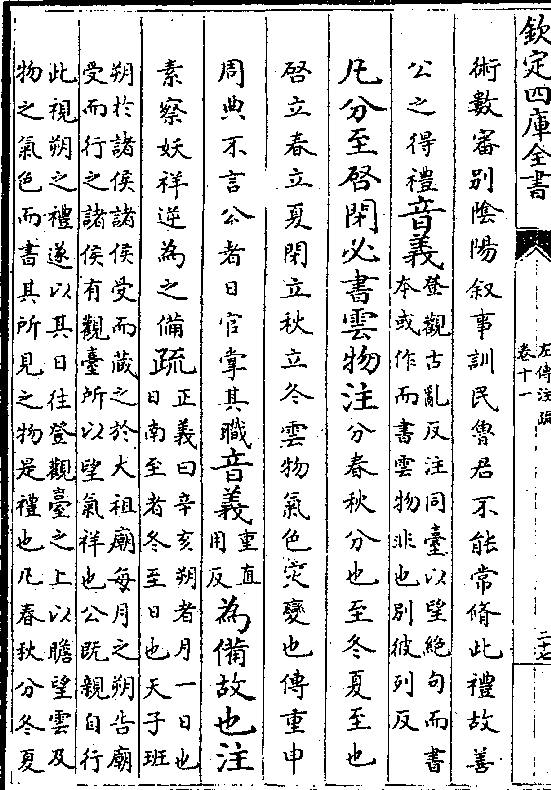 欽定四庫全書
左傳注疏
卷十一
二十七
術數審别陰陽叙事訓民魯君不能常脩此禮故善
公之得禮音義登觀古亂反注同臺以望絶句而書
本或作而書雲物非也别彼列反
凡分至啓閉必書雲物注分春秋分也至冬夏至也
啓立春立夏閉立秋立冬雲物氣色災變也傳重申
周典不言公者日官掌其職音義重直
用反
為備故也注
素察妖祥逆為之備疏正義曰辛亥朔者月一日也
日南至者冬至日也天子班
朔於諸侯諸侯受而藏之於大祖廟每月之朔告廟
受而行之諸侯有觀臺所以望氣祥也公既親自行
此視朔之禮遂以其日往登觀臺之上以瞻望雲及
物之氣色而書其所見之物是禮也凡春秋分冬夏